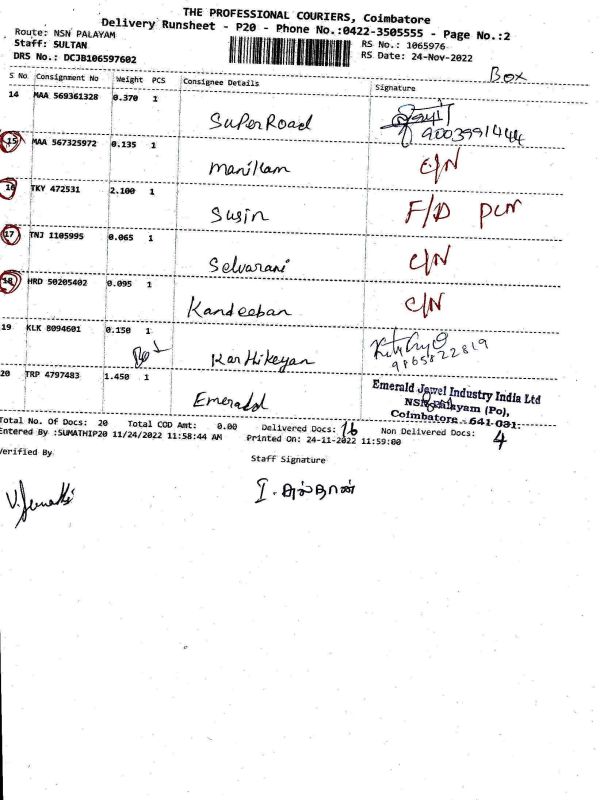 THE PROFESSIONAL COURIERS, Coimbatore
Delivery Runsheet - P20 - Phone No.:0422-3505555 - Page No.:2
Route: NSN PALAYAM
Staff: SULTAN
RS No.: 1065976
DRS No.: DCJB106597602
RS Date: 24-Nov-2022
Box
S No Consignment No Weight PCS Consignee Details Signature
14 MAA 569361328 0.370 1 SuperRoad
9003991444
15 MAA 567325972 0.135 1 Manikam C/N
16 TKY 472531 2.100 1 Susin F/D
17 TNJ 1105995 0.065 1 Selvarani C/N
18 HRD 50205402 0.095 1 Kandeeban C/N
19 KLK 8094601 0.150 1 Karthikeyan
9865822819
20 TRP 4797483 1.450 1 Emerald
Emerald Jewel Industry India Ltd
NSN Palayam (Po),
Coimbatore - 641-031.
Total No. Of Docs: 20 Total COD Amt: 0.00 Delivered Docs: 16 Non Delivered Docs: 4
Entered By :SUMATHIP20 11/24/2022 11:58:44 AM Printed On: 24-11-2022 11:59:00
Verified By
Staff Signature
I. சுல்தான்